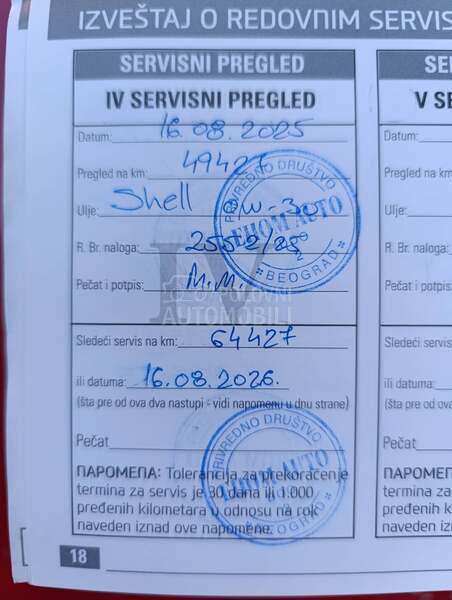 IZVEŠTAJ O REDOVNIM SERVIS
SERVISNI PREGLED
IV SERVISNI PREGLED
Datum: 16.08.2025
Pregled na km: 49427
Ulje: Shell W-30
R. Br. naloga: 2552/25
Pečat i potpis: M.M.
PRIVREDNO DRUŠTVO
EHOM AUTO
2
* BEOGRAD *
POLOVNI
AUTOMOBILI
Sledeći servis na km: 64427
ili datuma: 16.08.2026.
(šta pre od ova dva nastupi - vidi napomenu u dnu strane)
Pečat
PRIVREDNO DRUŠTVO
EHOM AUTO
BEOGRAD
NAPOMENA: Tolerancija za prekoračenje
termina za servis je 30 dana ili 1.000
pređenih kilometara u odnosu na rok
naveden iznad ove napomene.
18
SE
V S
Datum:
Pregled na km
Ulje:
R. Br. naloga:
Pečat i potpis:
Sledeći servis
ili datuma:
(šta pre od ova
Pečat
NAPOMEN
termina za
pređenih k
naveden iz